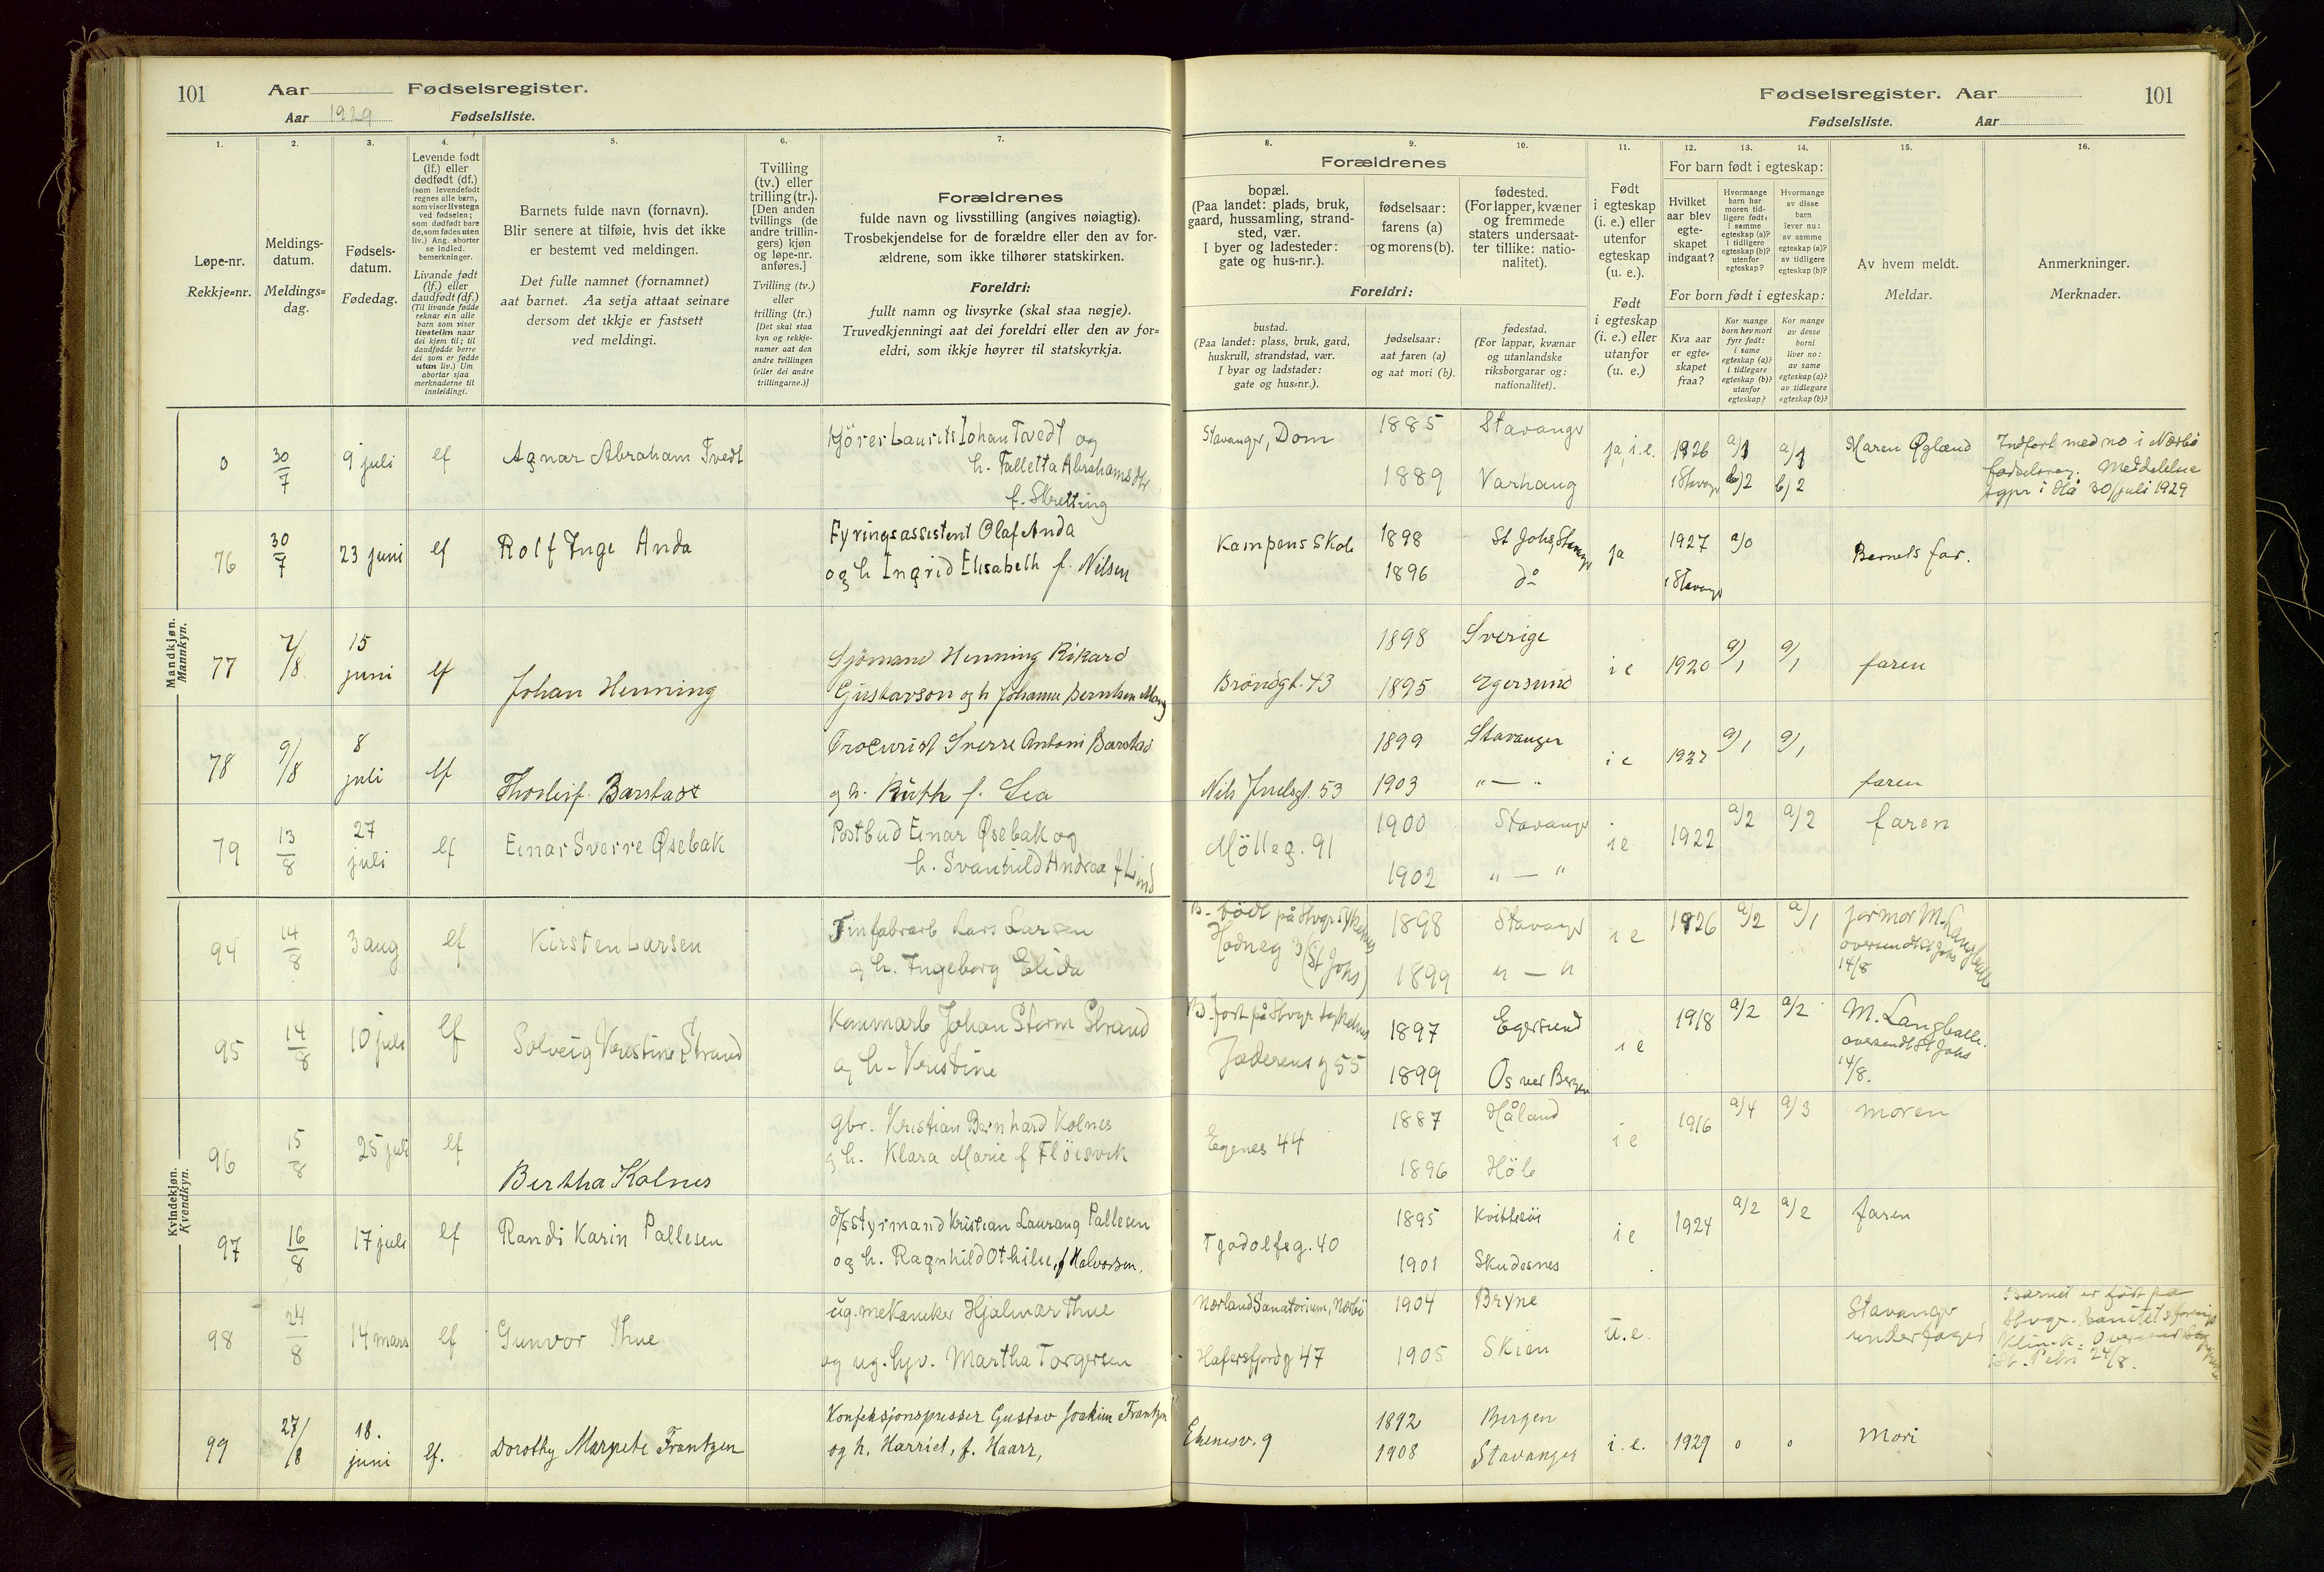 101 Aar Fødselsregister.
Aar 1929 Fødselsliste.
Fødselsregister. Aar 101
Fødselsliste. Aar
1. 2. 3. 4. 5. 6. 7.
Løpe-nr.
Rekkje=nr.
Meldings-
datum.
Meldings=
dag.
Fødsels-
datum.
Fødedag.
Levende født
(lf.) eller
dødfødt (df.)
(som levendefødt
regnes alle barn,
som viser livstegn
ved fødselen;
som dødfødt bare
de, som fødes uten
liv.) Ang. aborter
se indled.
bemerkninger.
Livande født
(lf.) eller
daudfødt (df.)
(Til livande fødde
reknar ein alle
barn som viser
livsteikn naar
dei kjem til; til
daudfødde berre
dei som er fødde
utan liv.) Um
abortar sjaa
merknaderne til
innleidingi.
Barnets fulde navn (fornavn).
Blir senere at tilføie, hvis det ikke
er bestemt ved meldingen.
Det fulle namnet (fornamnet)
aat barnet. Aa setja attaat seinare
dersom det ikkje er fastsett
ved meldingi.
Tvilling
(tv.) eller
trilling (tr.).
[Den anden
tvillings (de
andre trillin-
gers) kjøn
og løpe-nr.
anføres.]
Tvilling (tv.)
eller
trilling (tr.)
[Det skal staa
kyn og rekkje-
numer aat den
andre tvillingen
(eller dei andre
trillingarne.)]
Forældrenes
fulde navn og livsstilling (angives nøiagtig).
Trosbekjendelse for de forældre eller den av for-
ældrene, som ikke tilhører statskirken.
Foreldri:
fullt namn og livsyrke (skal staa nøgje).
Truvedkjenningi aat dei foreldri eller den av for=
eldri, som ikkje høyrer til statskyrkja.
8. 9. 10. 11. 12. 13. 14. 15. 16.
Forældrenes
bopæl.
(Paa landet: plads, bruk,
gaard, hussamling, strand-
sted, vær.
I byer og ladesteder:
gate og hus-nr.).
fødselsaar:
farens (a)
og morens (b).
fødested.
(For lapper, kvæner
og fremmede
staters undersaat-
ter tillike: natio-
nalitet).
Foreldri:
bustad.
(Paa landet: plass, bruk, gard,
huskrull, strandstad, vær.
I byar og ladstader:
gate og hus=nr.).
fødselsaar:
aat faren (a)
og aat mori (b).
fødestad.
(For lappar, kvænar
og utanlandske
riksborgarar og:
nationalitet).
Født
i egteskap
(i. e.) eller
utenfor
egteskap
(u. e.).
Født
i egteskap
(i. e.) eller
utanfor
(u. e.)
For barn født i egteskap:
Hvilket
aar blev
egte-
skapet
indgaat?
Hvormange
barn har
moren tid-
ligere født:
i samme
egteskap (a)?
i tidligere
egteskap (b)?
utenfor
egteskap?
Hvormange
av disse
barn
lever nu:
av samme
egteskap (a)?
av tidligere
egteskap (b)?
For born født i egteskap:
Kva aar
er egte=
skapet
fraa?
Kor mange
born hev mori
fyrr født:
i same
egteskap (a)?
i tidlegare
egteskap (b)?
utanfor
egteskap?
Kor mange
av desse
borni
liver no:
av same
egteskap (a)?
av tidlegare
egteskap (b)?
Av hvem meldt.
Meldar.
Anmerkninger.
Merknader.
Mandkjøn.
Mannkyn.
0 30/7 9 juli lf Agnar Abraham Tvedt
Kjörer Laurits Johan Tvedt og
h. Talletta Abrahamsdtr
f. Skretting
Stavanger, Dom 1885 Stavanger
1889 Varhaug
ja, i.e. 1926 i Stavgr a/1 b/2 a/1 b/2 Maren Öglænd
Indført med no i Nærbö
fødselsreg. Meddelelse
sgpr i Hå 30/juli 1929
76 30/7 23 juni lf Rolf Inge Anda
Fyringsassistent Olaf Anda
og h Ingrid Elisabeth f. Nilsen
Kampens Skole 1898 St Johs, Stavngr
1896 do
ja 1927 i Stavngr a/0 Barnets far.
77 2/8 15 juni lf Johan Henning
Sjömand Henning Rikard
Gustavson og h Johanne Berntsen
Bröndgt. 43 1898 Sverige
1895 Egersund
i e 1920 a/1 a/1 faren
78 9/8 8 juli lf Thorleif Barstad
Procurist Sverre Antoni Barstad
og h. Ruth f. Lea
Nils Juelsgt. 53 1899 Stavanger
1903 " — "
i e 1927 a/1 a/1 faren
79 13/8 27 juli lf Einar Sverre Øsebak
Postbud Einar Øsebak og
h. Svanhild Andrea f Lind
Mölleg. 91 1900 Stavanger
1902 " — "
i e 1922 a/2 a/2 faren
Kvindekjøn.
Kvendkyn.
94 14/8 3 aug lf Kirsten Larsen
Tinfabrarb Lars Larsen
og h. Ingeborg Elida
B. født på Stvgr sykehus
Hodneg 3 (St Johs) 1898 Stavanger
1899 " — "
i e 1926 a/2 a/1 jormor M. Langballe
oversendt St Johs
14/8
95 14/8 10 juli lf Solveig Kristine Strand
Kanmarb Johan Storm Strand
og h. Kristine
B. født på Stvgr sykehus
Jæderens g 55 1897 Egersund
1899 Os ved Bergen
i e 1918 a/2 a/2 M. Langballe.
oversendt St Johs
14/8.
96 15/8 25 juli lf Bertha Kolnes
gbr. Kristian Bernhard Kolnes
og h. Klara Marie f Flöisvik
Egenes 44 1887 Håland
1896 Höle
i e 1916 a/4 a/3 moren
97 16/8 17 juli lf Randi Karin Pallesen
d/s styrmand Kristian Laurang Pallesen
og h. Ragnhild Othilie, f Halvorsen.
Tjodolfsg. 40 1895 Kvitsöi
1901 Skudesnes
i e 1924 a/2 a/2 faren
98 24/8 14 mars lf Gunvor Thue
ug. mekaniker Hjalmar Thue
og ug. hjv. Martha Torgersen
Nærland Sanatorium, Nærbö 1904 Bryne
Hafersfjordg 47 1905 Skien
u.e. Stavanger
underfoged
Barnet er født på
Stvgr. Sanitetsforenings
Klinik. Oversendt
St. Petri 24/8.
99 27/8 18. juni lf. Dorothy Margrete Frantzen
Konfeksjonspresser Gustav Joakim Frantzen
og h. Harriet, f. Haarr,
Egenesv. 9 1892 Bergen
1908 Stavanger
i. e. 1929 0 0 Mori